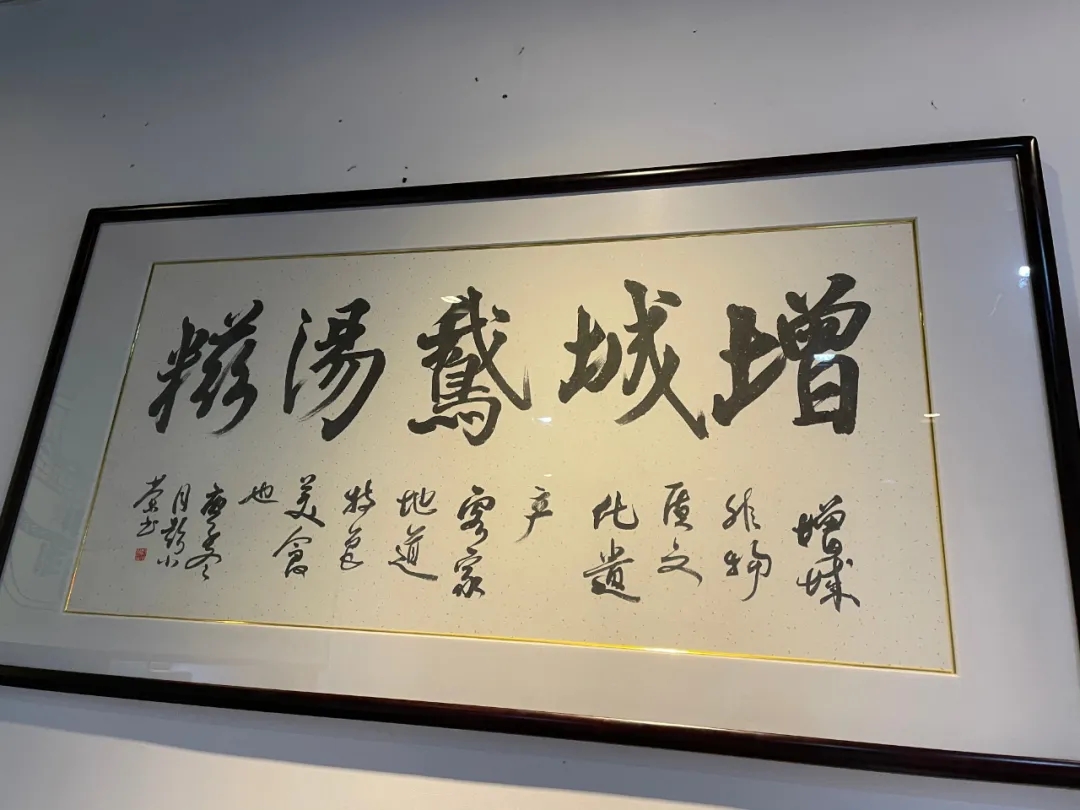 增城鵝湯糍
增城
非物
质文
化遺
产
客家
地道
特色
美食
也
庚子冬
月 小
荣书